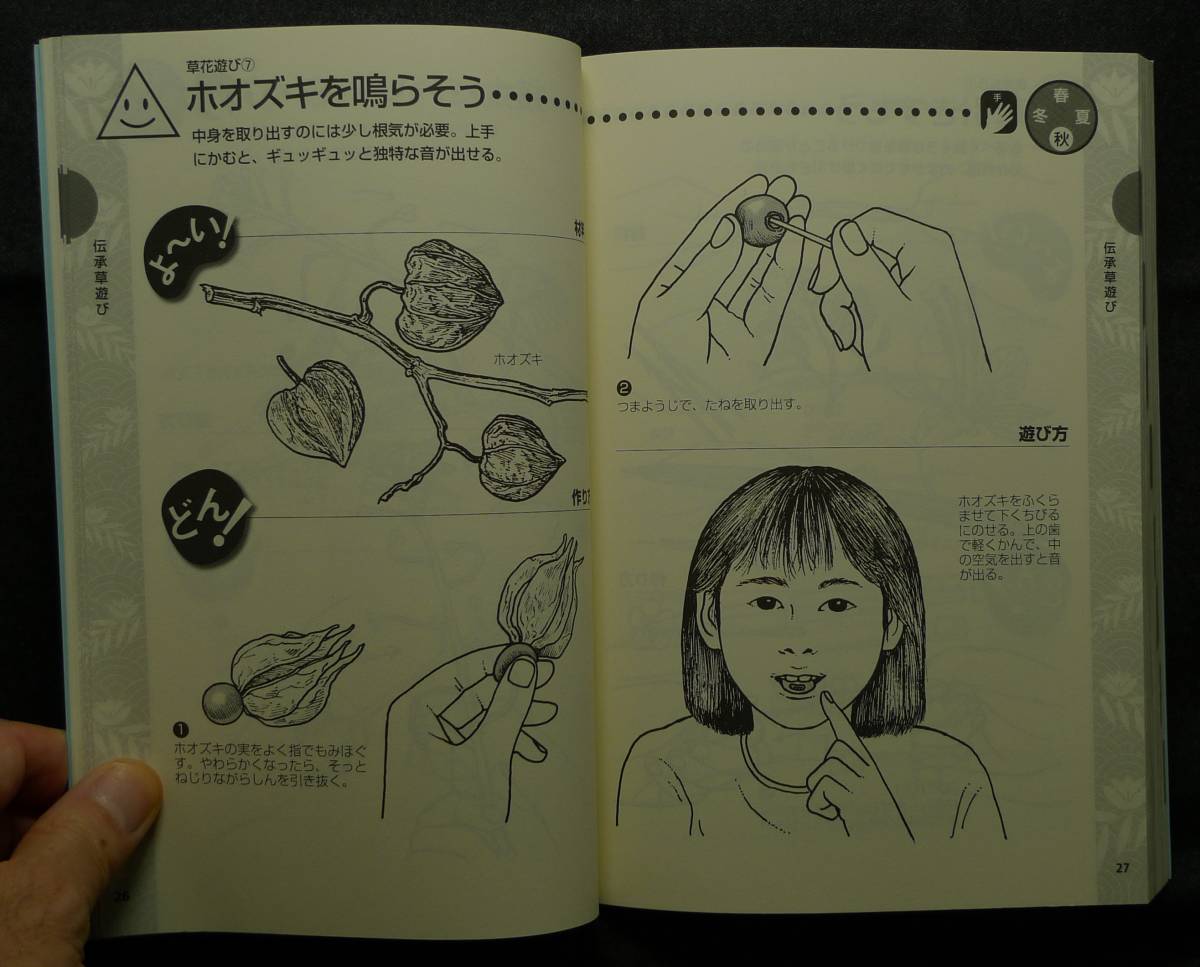 草花遊び⑦
ホオズキを鳴らそう
中身を取り出すのには少し根気が必要。上手
にかむと、ギュッギュッと独特な音が出せる。
よ～い!
伝承草遊び
ホオズキ
どん!
作り
❶
ホオズキの実をよく指でもみほぐ
す。やわらかくなったら、そっと
ねじりながらしんを引き抜く。
26
手
春
冬 夏
秋
伝承草遊び
❷
つまようじで、たねを取り出す。
遊び方
ホオズキをふくら
ませて下くちびる
にのせる。上の歯
で軽くかんで、中
の空気を出すと音
が出る。
27